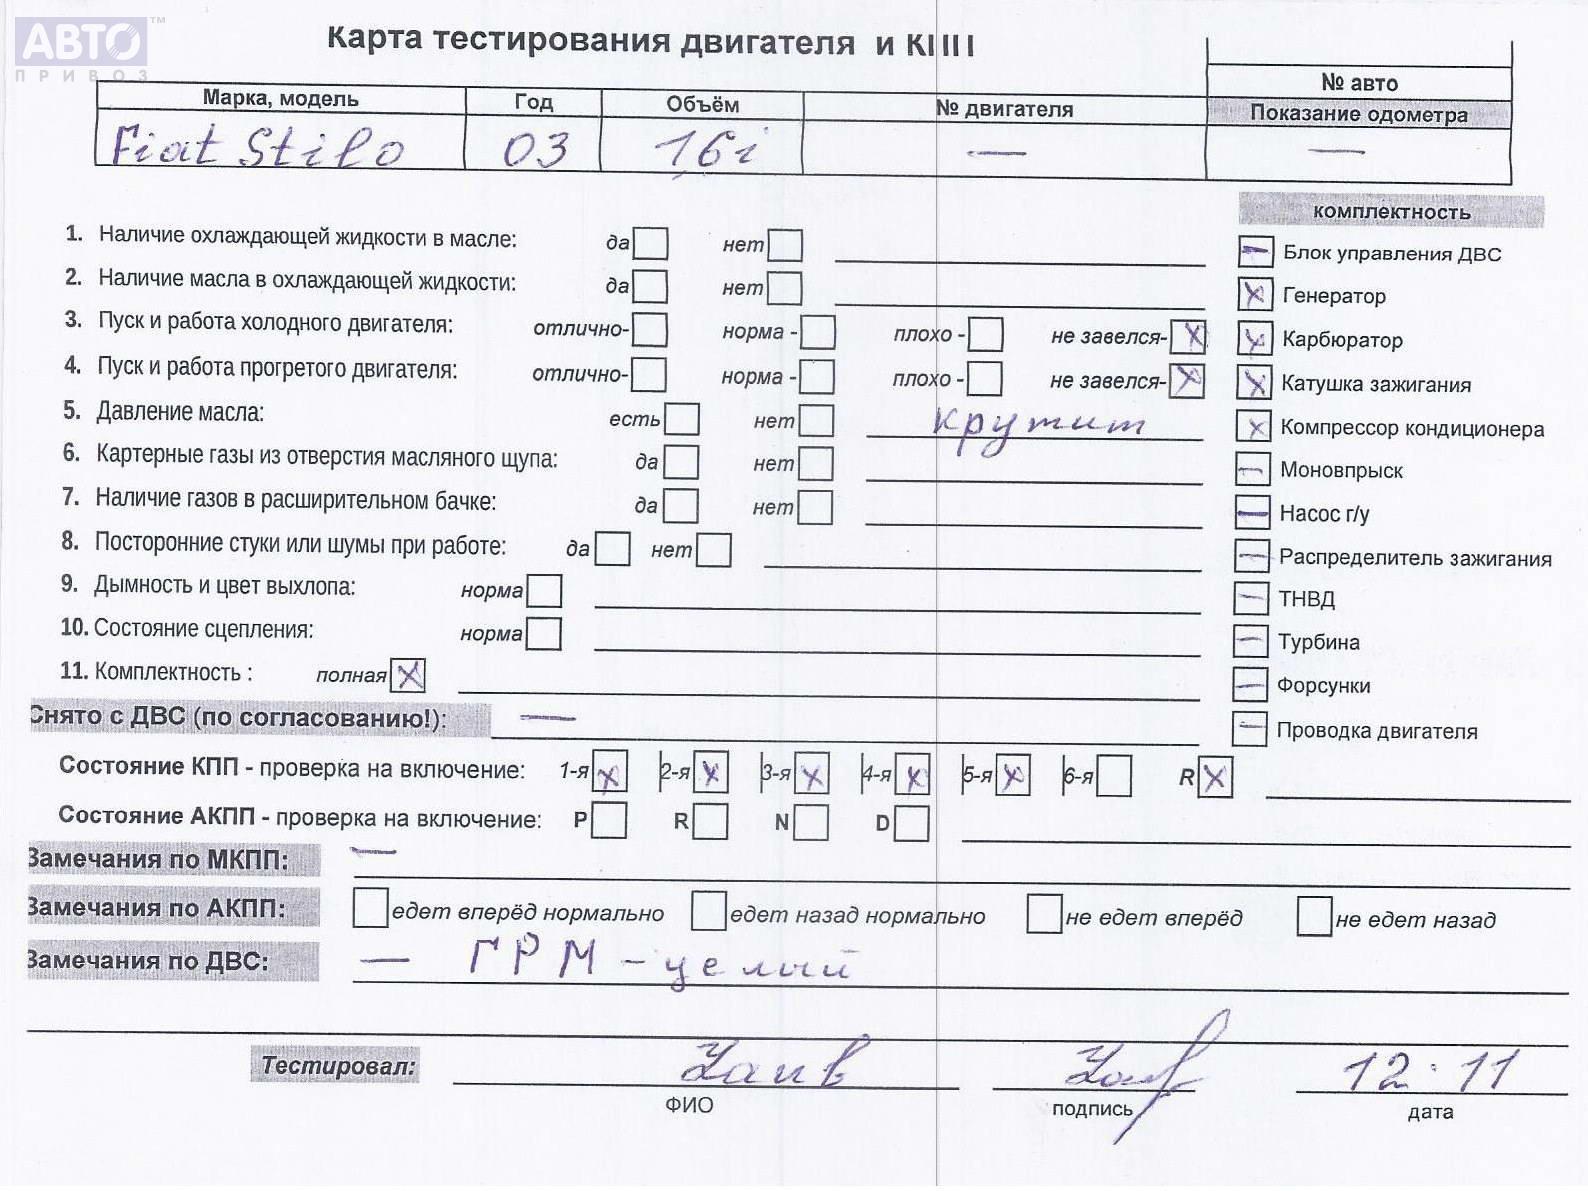 АВТО™
ПРИВОЗ
Карта тестирования двигателя и КПП
№ авто
Марка, модель Год Объём № двигателя Показание одометра
Fiat Stilo 03 16i — —
комплектность
1. Наличие охлаждающей жидкости в масле: да нет
Блок управления ДВС
2. Наличие масла в охлаждающей жидкости: да нет
Генератор
3. Пуск и работа холодного двигателя: отлично- норма - плохо - не завелся- X
Карбюратор
4. Пуск и работа прогретого двигателя: отлично- норма - плохо - не завелся- X
Катушка зажигания
5. Давление масла: есть нет крутит
Компрессор кондиционера
6. Картерные газы из отверстия масляного щупа: да нет
Моновпрыск
7. Наличие газов в расширительном бачке: да нет
Насос г/у
8. Посторонние стуки или шумы при работе: да нет
Распределитель зажигания
9. Дымность и цвет выхлопа: норма
ТНВД
10. Состояние сцепления: норма
Турбина
11. Комплектность : полная X
Форсунки
Снято с ДВС (по согласованию!): —
Проводка двигателя
Состояние КПП - проверка на включение: 1-я X 2-я X 3-я X 4-я X 5-я X 6-я R X
Состояние АКПП - проверка на включение: P R N D
Замечания по МКПП: —
Замечания по АКПП: едет вперёд нормально едет назад нормально не едет вперёд не едет назад
Замечания по ДВС: — ГРМ - целый
Тестировал: 12.11
ФИО подпись дата